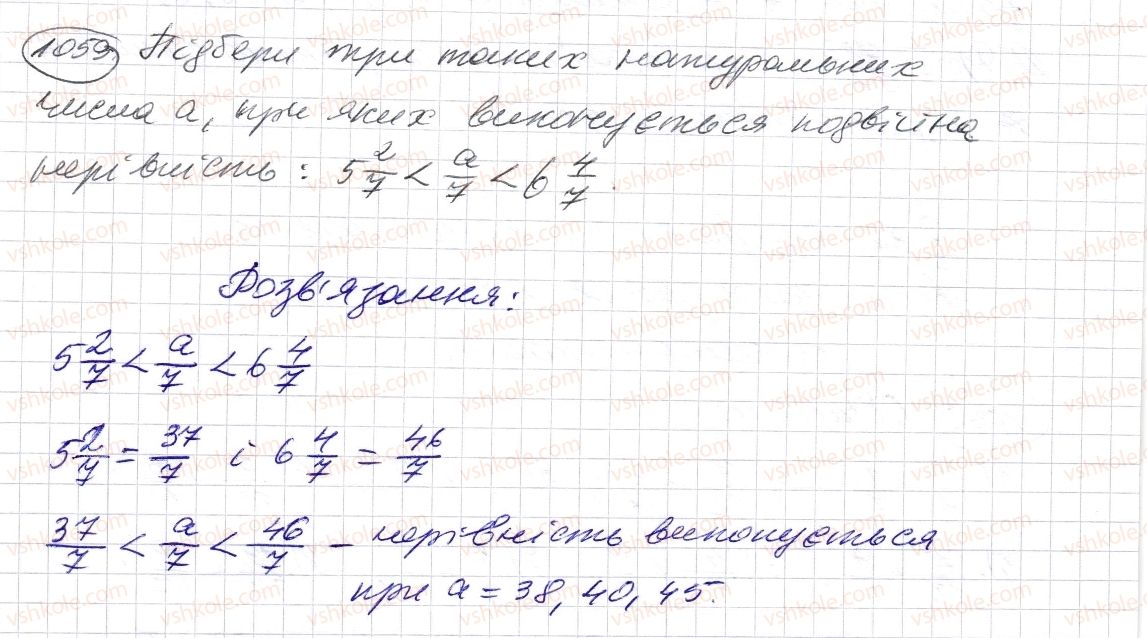 1059 Підбери три таких натуральних
числа a, при яких виконується подвійна
нерівність: 5 2/7 < a/7 < 6 4/7.
Розв'язання:
5 2/7 < a/7 < 6 4/7
5 2/7 = 37/7 і 6 4/7 = 46/7
37/7 < a/7 < 46/7 – нерівність виконується
при a = 38, 40, 45.